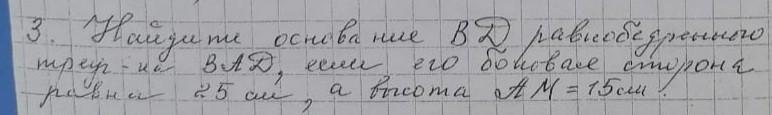 3. Найдите основание ВД равнобедренного
треуг-ка ВАД, если его боковая сторона
равна 25 см, а высота АМ = 15 см.